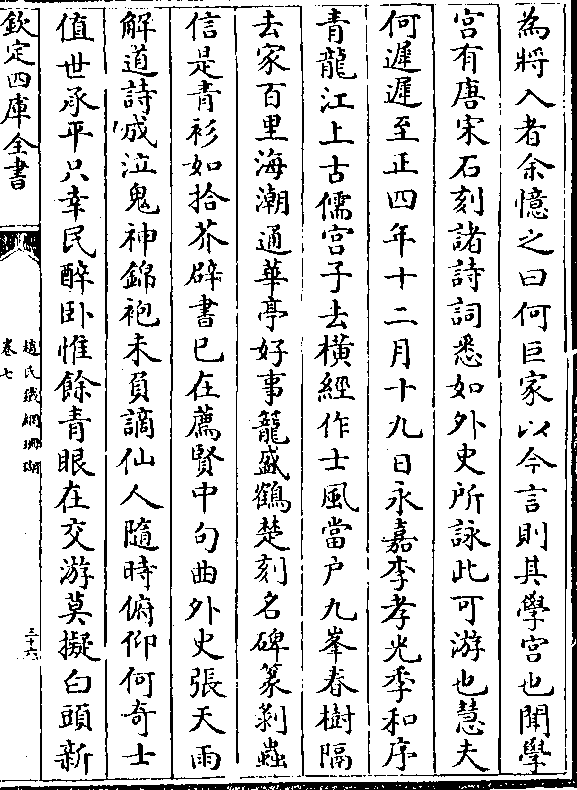 為將入者余憶之曰何巨家以今言則其學宫也聞學
宫有唐宋石刻諸詩詞悉如外史所詠此可游也慧夫
何遲遲至正四年十二月十九日永嘉李孝光季和序
青龍江上古儒宫子去橫經作士風當户九峯春樹隔
去家百里海潮通華亭好事籠盛鶴楚刻名碑篆剥蟲
信是青衫如拾芥辟書已在薦賢中句曲外史張天雨
解道詩成泣鬼神錦袍未負謫仙人隨時俯仰何奇士
值世承平只幸民醉卧惟餘青眼在交游莫擬白頭新
欽定四庫全書
趙氏鐵網珊瑚
卷七
三十六